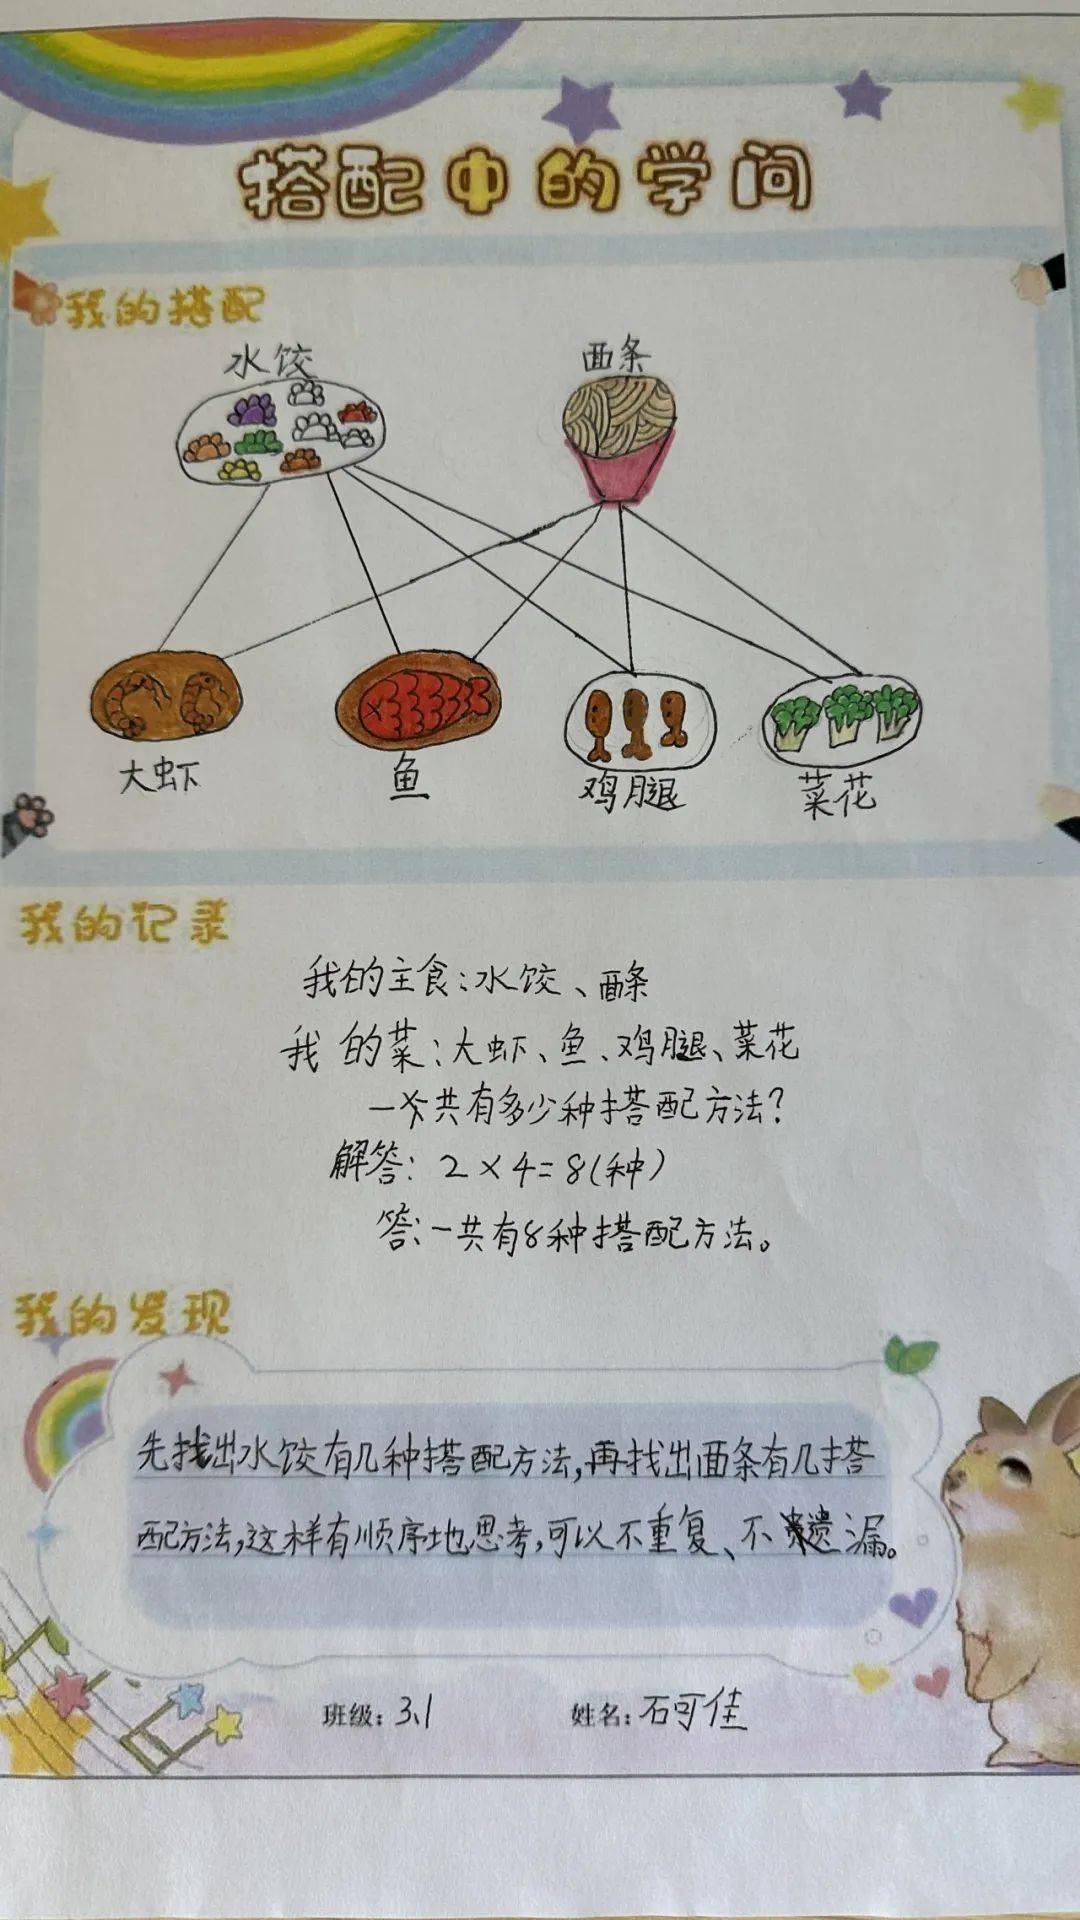 搭配中的学问
我的搭配
水饺
面条
大虾
鱼
鸡腿
菜花
我的记录
我的主食:水饺、面条
我的菜:大虾、鱼、鸡腿、菜花
一共有多少种搭配方法?
解答: 2×4=8(种)
答:一共有8种搭配方法。
我的发现
先找出水饺有几种搭配方法,再找出面条有几搭
配方法,这样有顺序地思考,可以不重复、不遗漏。
班级: 3.1
姓名: 石可佳